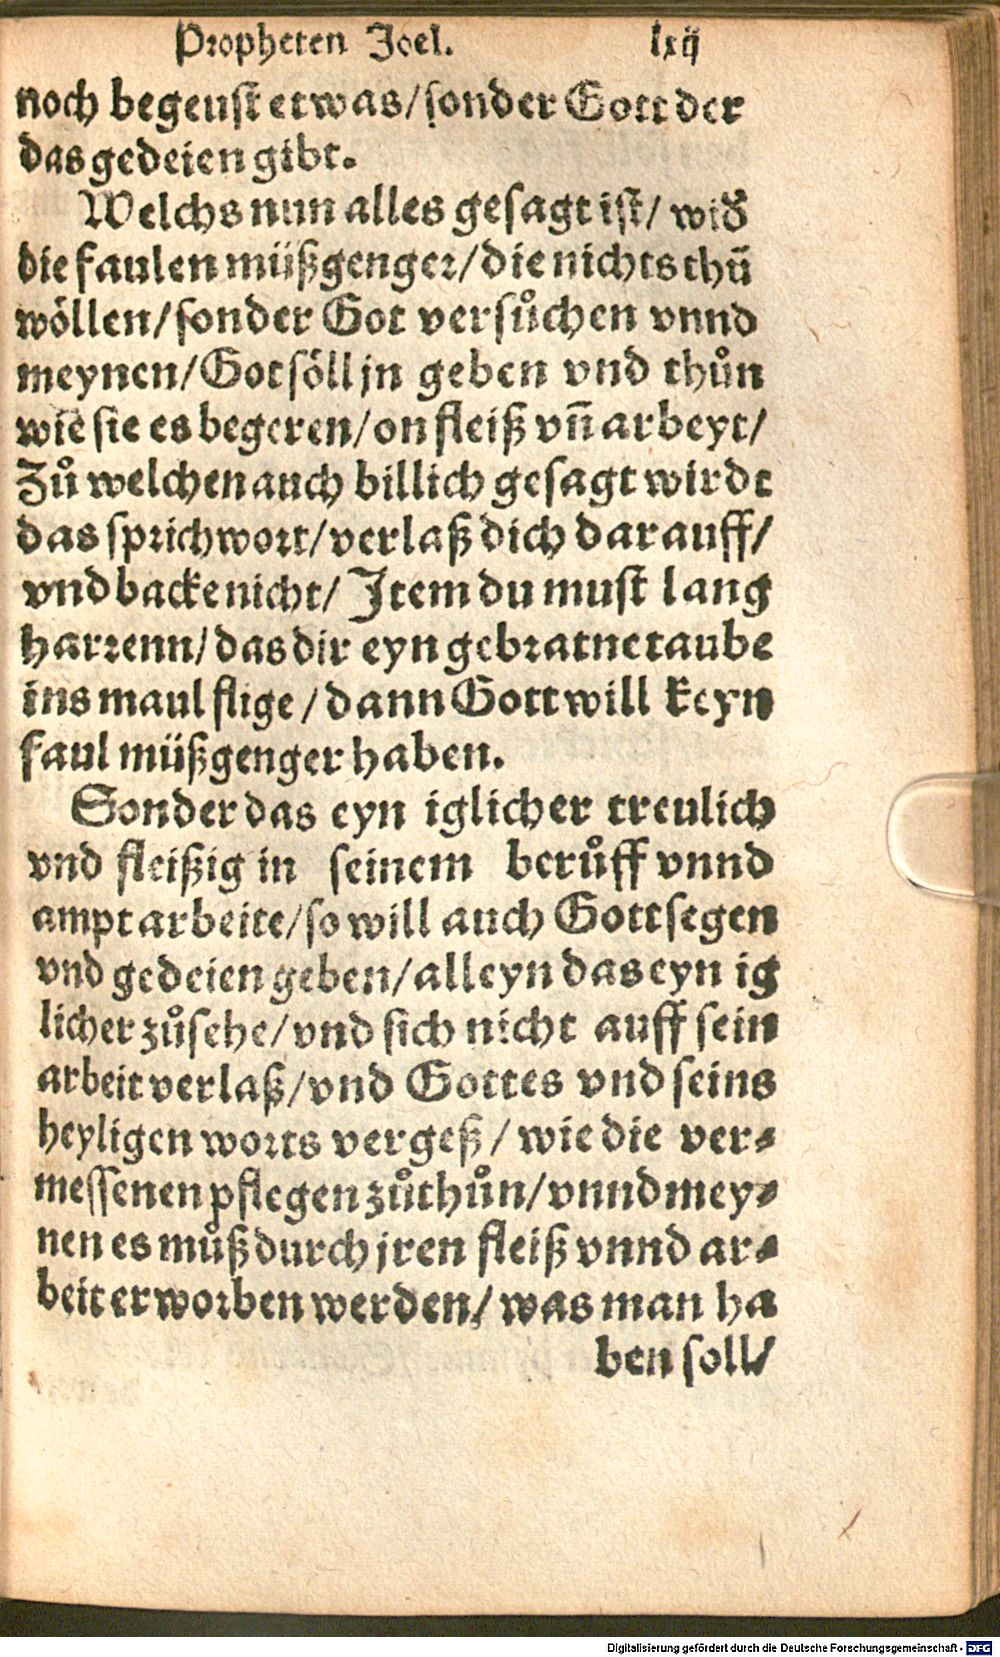 Propheten Joel. lxij
noch begeust etwas/sonder Gott der
das gedeien gibt.
Welchs nun alles gesagt ist/ wid̕
die faulen müßgenger/die nichts thū
wöllen/sonder Got versůchen vnnd
meynen/Got söll jn geben vnd thůn
wie sie es begeren/on fleiß vn̄ arbeyt/
Zů welchen auch billich gesagt wirdt
das sprichwort/verlaß dich darauff/
vnd backe nicht/ Item du must lang
harrenn/das dir eyn gebratne taube
ins maul flige/dann Gott will keyn
faul müßgenger haben.
Sonder das eyn iglicher treulich
vnd fleißig in seinem berůff vnnd
ampt arbeite/so will auch Gott segen
vnd gedeien geben/alleyn das eyn ig
licher zůsehe/vnd sich nicht auff sein
arbeit verlaß/vnd Gottes vnd seins
heyligen worts vergeß/ wie die ver⸗
messenen pflegen zůthůn/vnnd mey⸗
nen es můß durch jren fleiß vnnd ar⸗
beit erworben werden/ was man ha
ben soll/
Digitalisierung gefördert durch die Deutsche Forschungsgemeinschaft - DFG